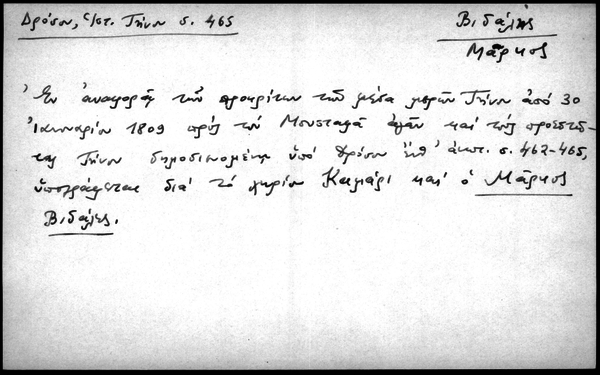 Δρόσου, Ἱστ. Τήνου σ. 465
Βιδάλης
Μᾶρκος
Ἐν ἀναφορᾷ τῶν προκρίτων τῶν μέσα μερῶν Τήνου ἀπό 30
Ἰανουαρίου 1809 πρός τόν Μουσταφᾶ ἀγᾶν καί τούς προεστῶ-
τας Τήνου δημοσιευομένῃ ὑπό Δρόσου ἔνθ' ἀνωτ. σ. 462-465,
ὑπογράφεται διά τό χωρίον Καρπάρι καί ὁ Μᾶρκος
Βιδάλης.